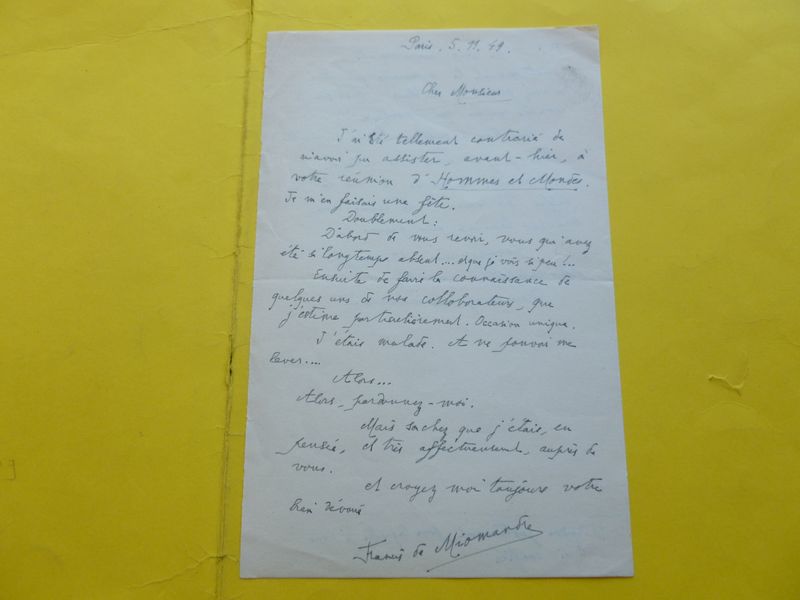 Paris. 5. 11. 49.
Cher Monsieur
J'ai été tellement contrarié de
n'avoir pu assister, avant-hier, à
votre réunion d'Hommes et Mondes.
Je m'en faisais une fête.
Doublement :
D'abord de vous revoir, vous qui avez
été si longtemps absent... et que je vois si peu !..
Ensuite de faire la connaissance de
quelques uns de vos collaborateurs, que
j'estime particulièrement. Occasion unique.
J'étais malade. A ne pouvoir me
lever....
Alors...
Alors, pardonnez-moi.
Mais sachez que j'étais, en
pensée, et très affectueusement, auprès de
vous.
et croyez moi toujours votre
bien dévoué
Francis de Miomandre